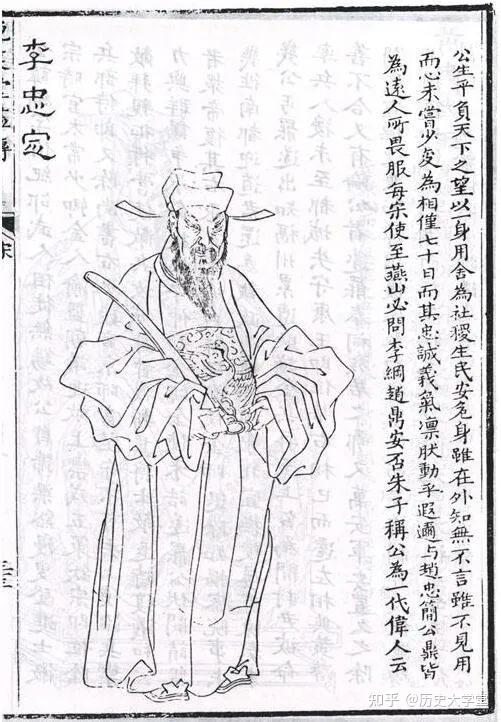 公生平負天下之望以一身用舍為社稷生民安危身雖在外知無不言雖不見用
而心未嘗少変為相僅七十日而其忠誠義氣凛肰動乎遐邇与趙忠簡公鼎皆
為遠人所畏服每宋使至燕山必問李綱趙鼎安否朱子稱公為一代偉人云
李忠定
知乎 @历史大学堂